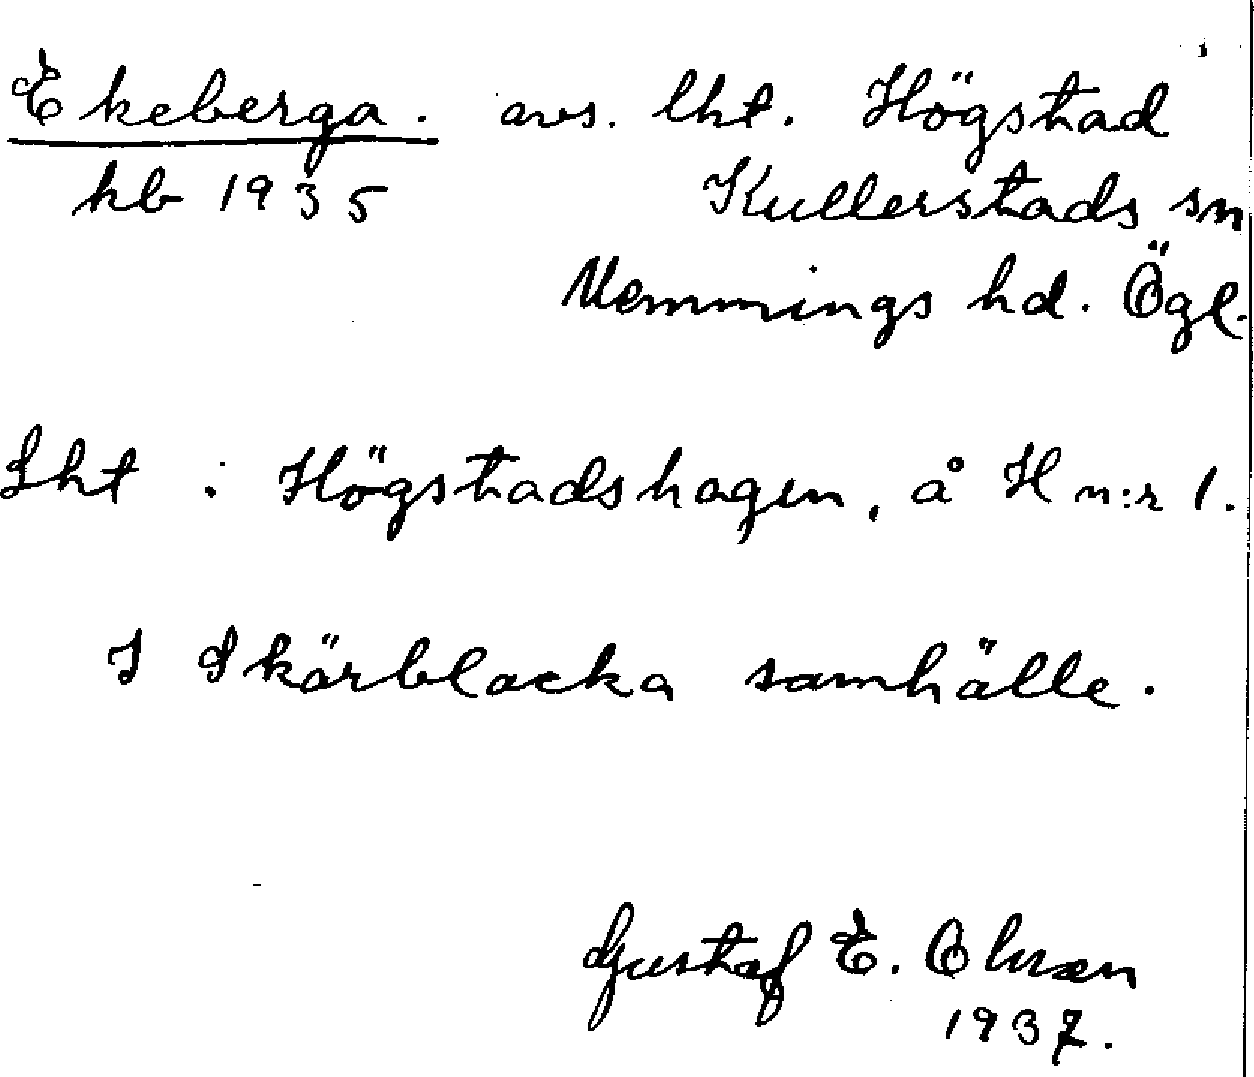 Ekeberga. avs. lht. Högstad
hb 1935 Kullerstads sn
Memmings hd. Ögl.
Lht : Högstadshagen, å H n:r 1.
I Skärblacka samhälle.
Gustaf E. Olsson
1937.